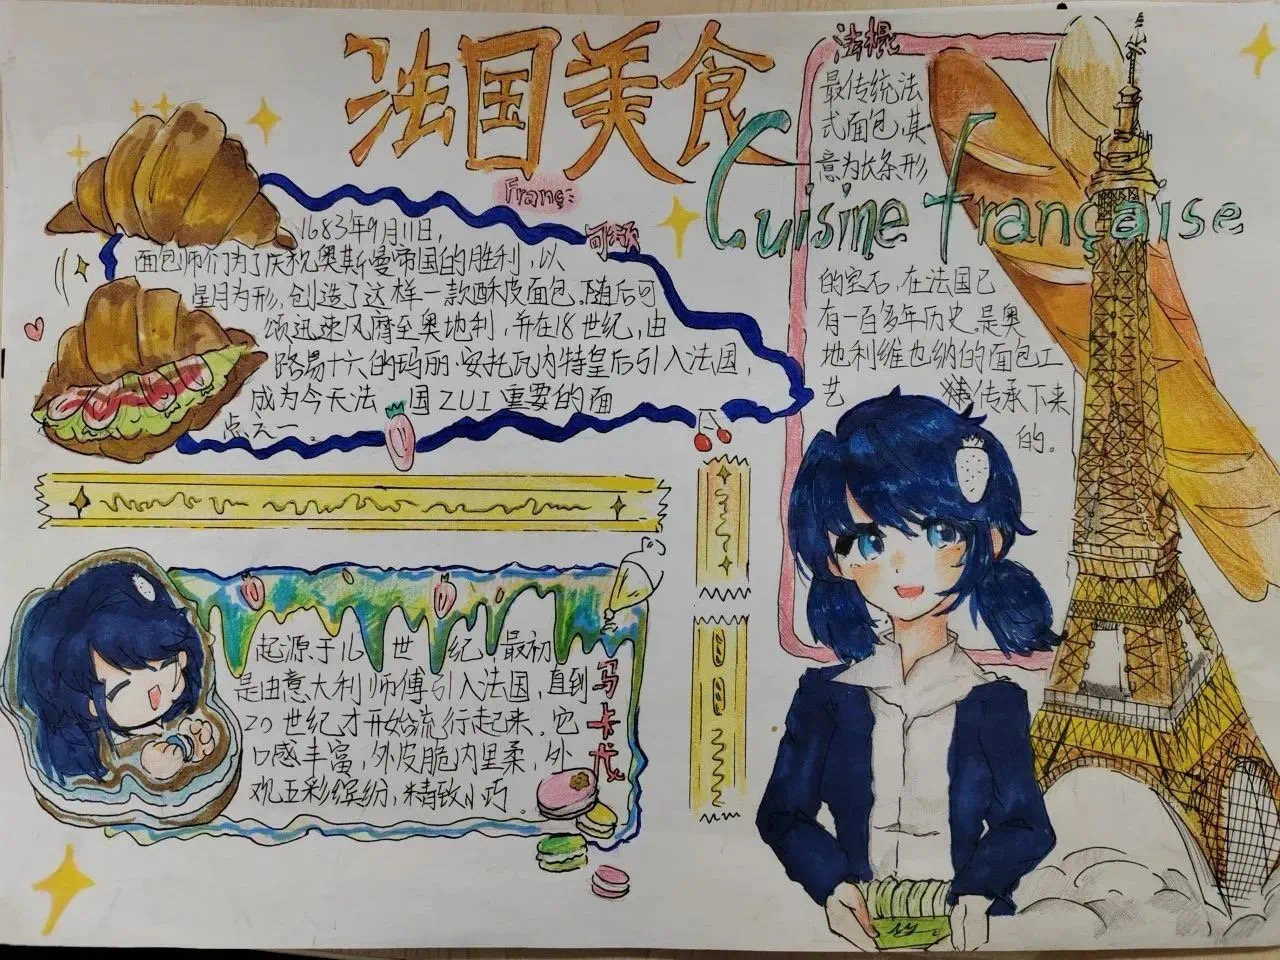 法国美食
Cuisine française
Franç
可颂
1683年9月11日
面包师们为了庆祝奥斯曼帝国的胜利,以
星月为形,创造了这样一款酥皮面包.随后可
颂迅速风靡至奥地利,并在18世纪,由
路易十六的玛丽·安托瓦内特皇后引入法国,
成为今天法国ZUI重要的面
点之一。
法棍
最传统法
式面包,其
意为长条形
的宝石,在法国已
有一百多年历史.是奥
地利维也纳的面包工
艺传承下来
的。
马卡龙
起源于16世纪,最初
是由意大利师傅引入法国,直到
20世纪才开始流行起来.它
口感丰富,外皮脆内里柔,外
观五彩缤纷,精致小巧.